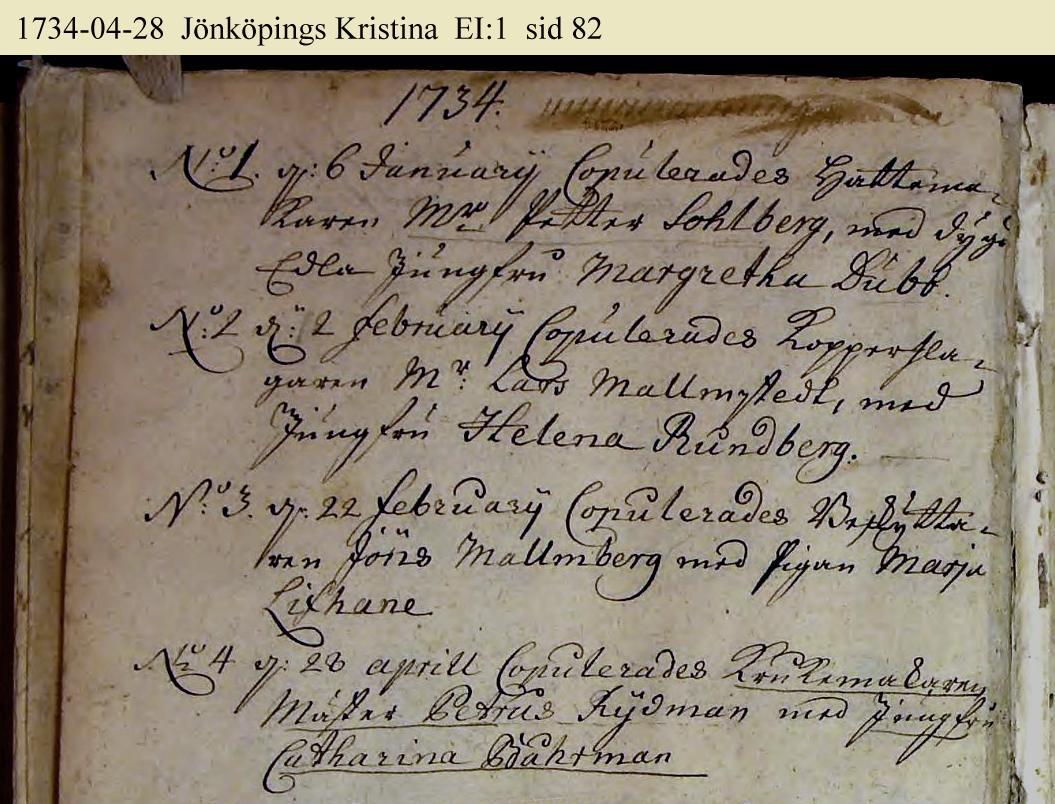 1734-04-28 Jönköpings Kristina EI:1 sid 82
1734.
No: 1. d: 6 Januarÿ Copulerades Hattema-
karen Mr Petter Sohlberg, med dyge
Edla Jungfru Margretha Dubb.
No: 2 d: 2 februarÿ Copulerades Koppersla-
garen Mr: Lars Mallmstedt, med
Jungfru Helena Rundberg.
No: 3. d. 22 februarÿ Copulerades
ren Jöns Mallmberg med Pigan Marja
Lixhane
No: 4 d: 28 aprill Copulerades Krukemakaren
Mäster Petrus Rydman med Jungfru
Catharina